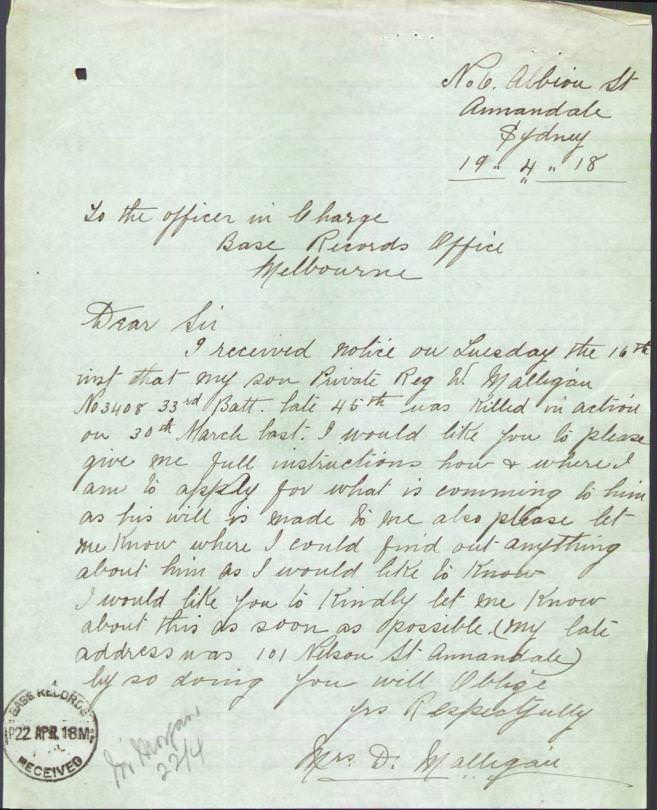 No 6. Albion St
Annandale
Sydney
19 " 4 " 18
To the officer in Charge
Base Records Office
Melbourne
Dear Sir
I received notice on Tuesday the 16th
inst that my son Private Reg W. Malligan
No 3408 33rd Batt. late 45th was killed in action
on 30th March last. I would like you to please
give me full instructions how & where I
am to apply for what is comming to him
as his will is made to me also please let
me know where I could find out anything
about him as I would like to know
I would like you to kindly let me know
about this as soon as possible. (My late
address was 101 Nelson St Annandale)
by so doing you will Oblige
yrs Respectfully
Mrs. D. Malligan
BASE RECORDS
22 APR. 18
RECEIVED
22/4